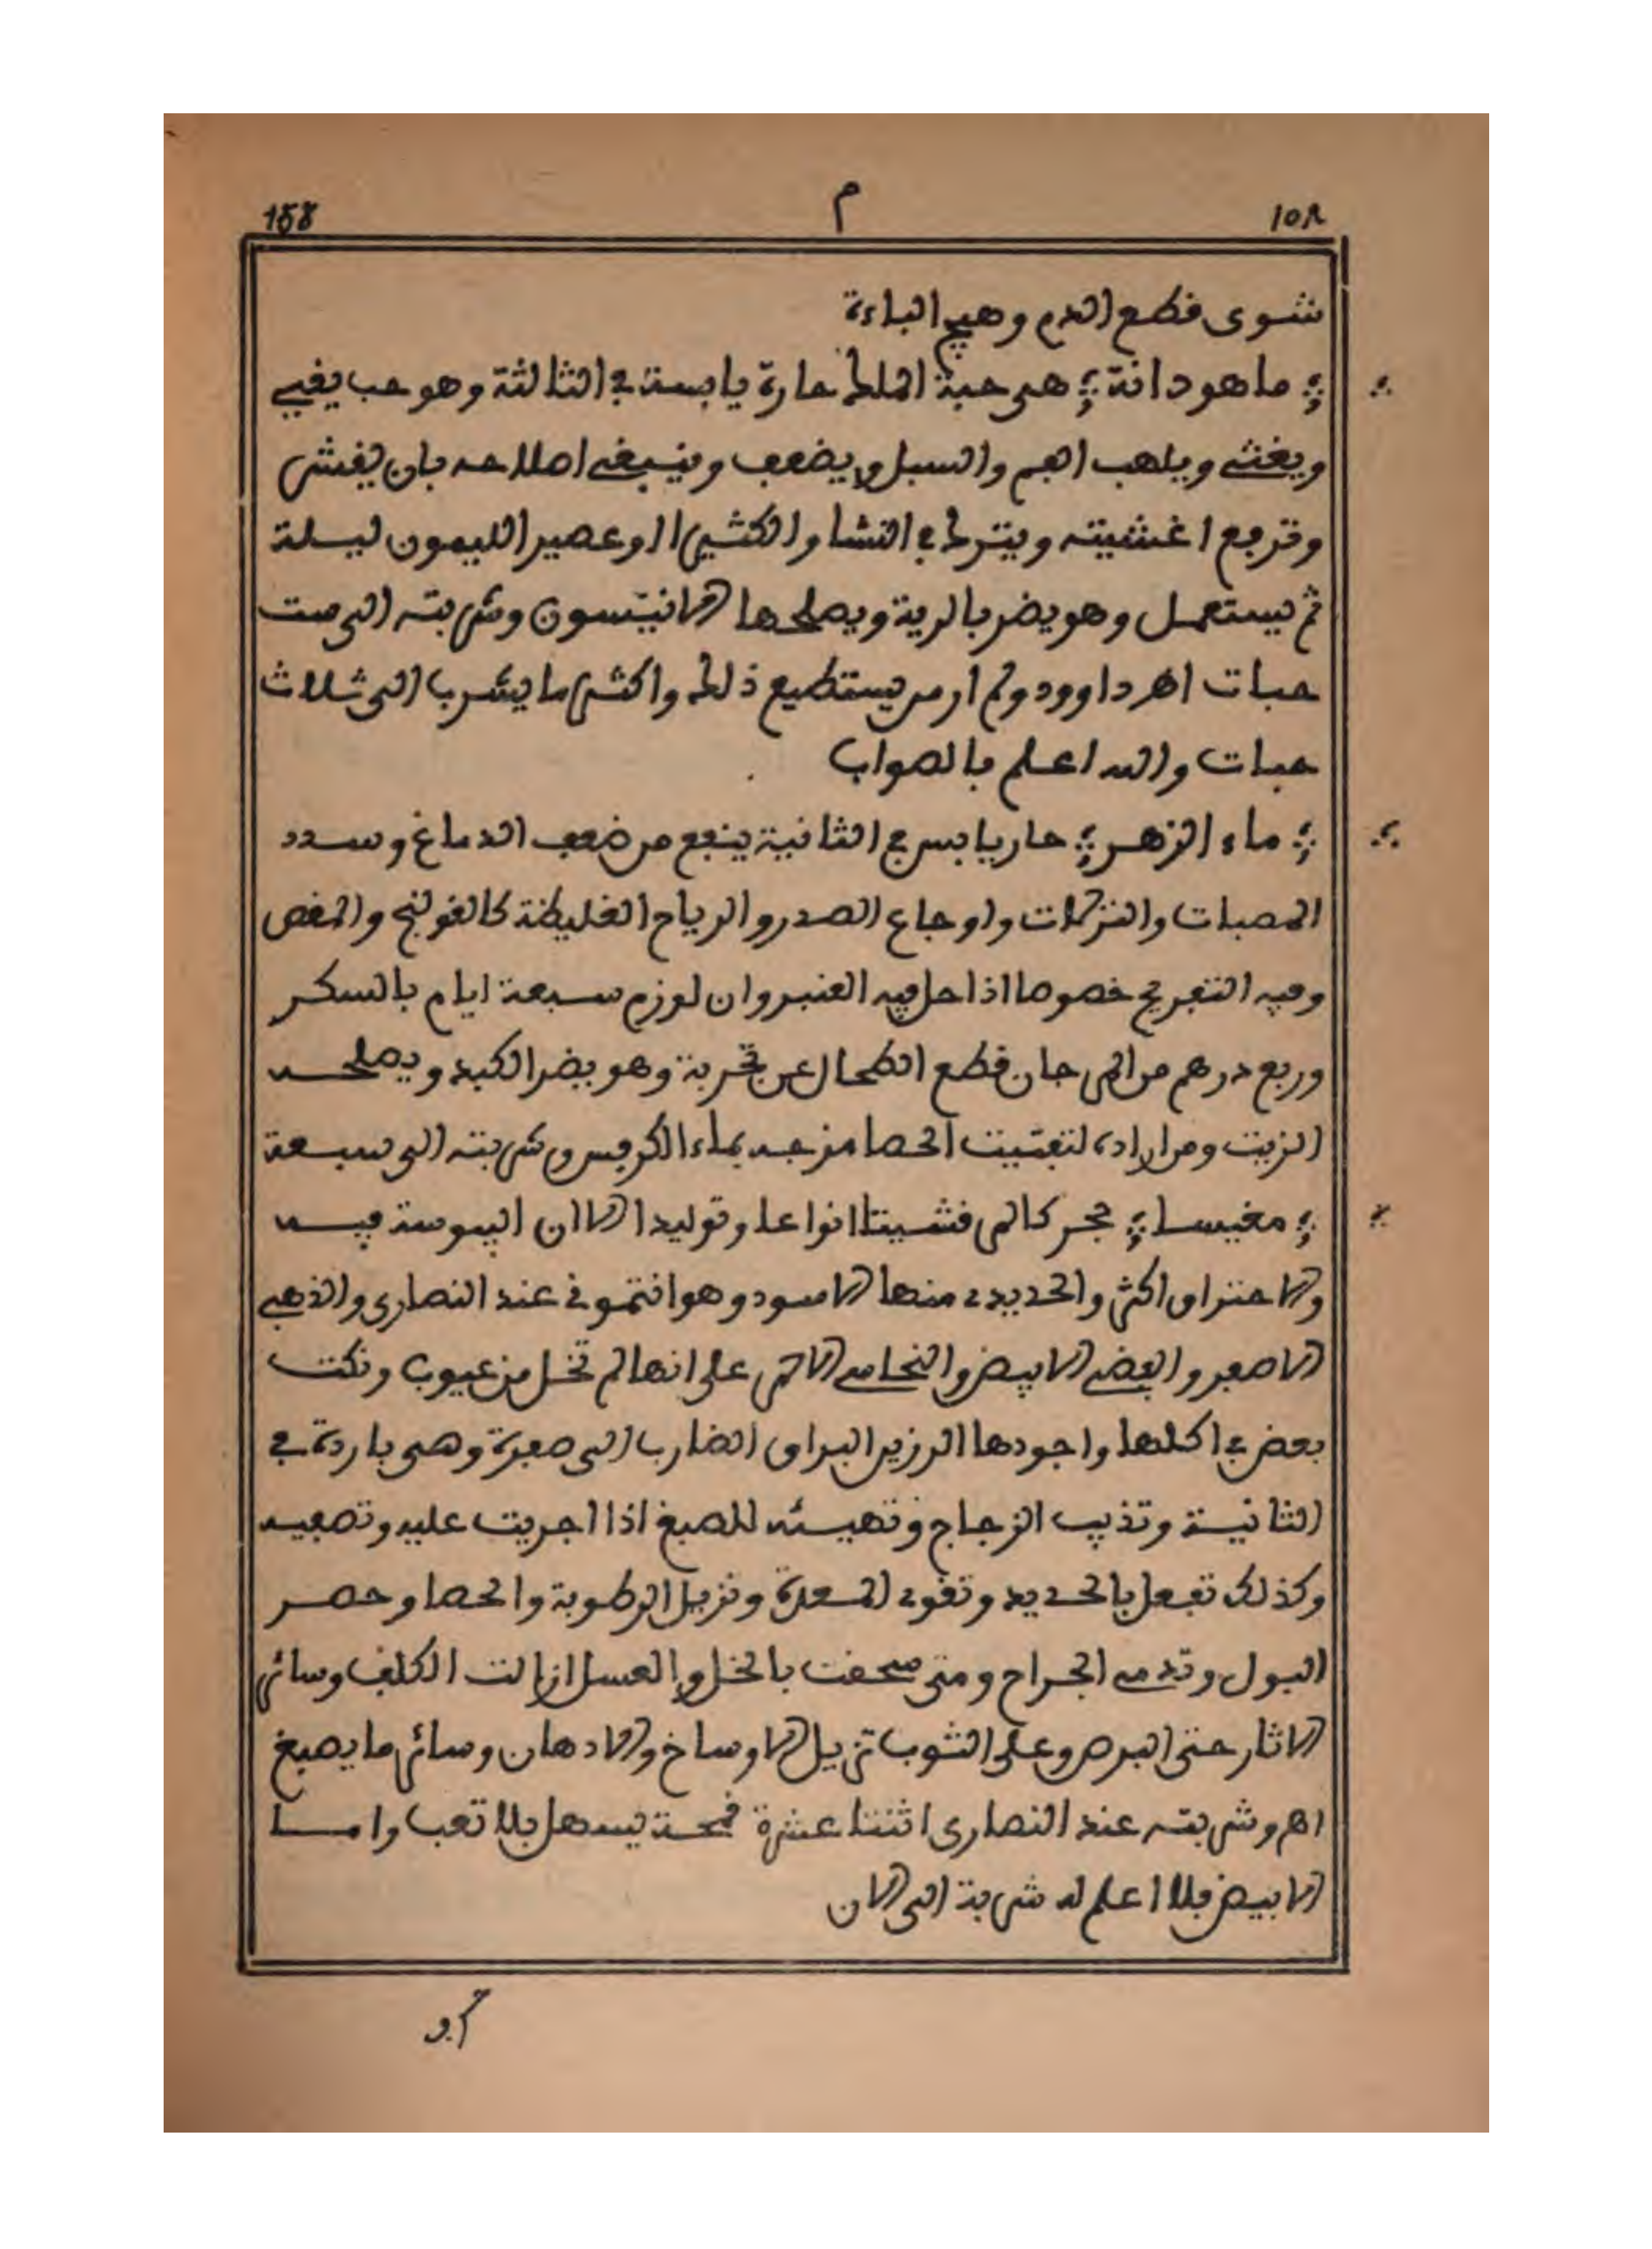 158
م
١٥٨
شوى قطع الدم وهيج الباءة
؞ ماهودانة ؞ هى حبة الملك حارة يابسة في الثالثة وهو حب يقيي
ويغثي ويلهب الفم والسبل ويضعف وينبغي اصلاحه بان يقشر
وترفع اغشيته ويترك في النشا والكثيرا او عصير الليمون ليلة
ثم يستعمل وهو يضر بالرية ويصلحها الانيسون وشربته الى ست
حبات اهـ داوود ولم ار من يستطيع ذلك واكثر ما يشرب الى ثلاث
حبات والله اعلم بالصواب
؞ ماء الزهر ؞ حار يابس في الثانية ينفع من ضعف الدماغ وسدد
المصبات والنزلات واوجاع الصدر والرياح الغليظة كالقولنج والمغص
وفيه التفريح خصوصا اذا حل فيه العنبر وان لوزم سبعة ايام بالسكر
وربع درهم من المرجان قطع الطحال عن تجربة وهو يضر الكبد ويصلحه
الزيت ومن اراده لتفتيت الحصا مزجه بماء الكرفس وشربته الى سبعة
؞ مغنيسا ؞ حجر كالمرقشيتا انواعا وتوليدا الا ان اليبوسة فيه
والاحتراق اكثر والحديدي منها الاسود وهو انتموني عند النصارى والذهبي
الاصفر والفضي الابيض والنحاسي الاحمر على انها لم تخل من عيوب ونكت
بعض في اكلها واجودها الرزين البراق الضارب الى صفرة وهى باردة في
الثانية وتذيب الزجاج وتهيئه للصبغ اذا اجريت عليه وتصفيه
وكذلك تفعل بالحديد وتقوي المعدة وتزيل الرطوبة والحصا وحصر
البول وتدمي الجراح ومتى سحقت بالخل والعسل ازالت الكلف وسائر
الاثار حتى البرص وعلى الثوب تزيل الاوساخ والادهان وسائر ما يصبغ
اهـ وشربته عند النصارى اثنتا عشرة قمحة يسهل بلا تعب واما
الابيض فلا اعلم له شربة الى الان